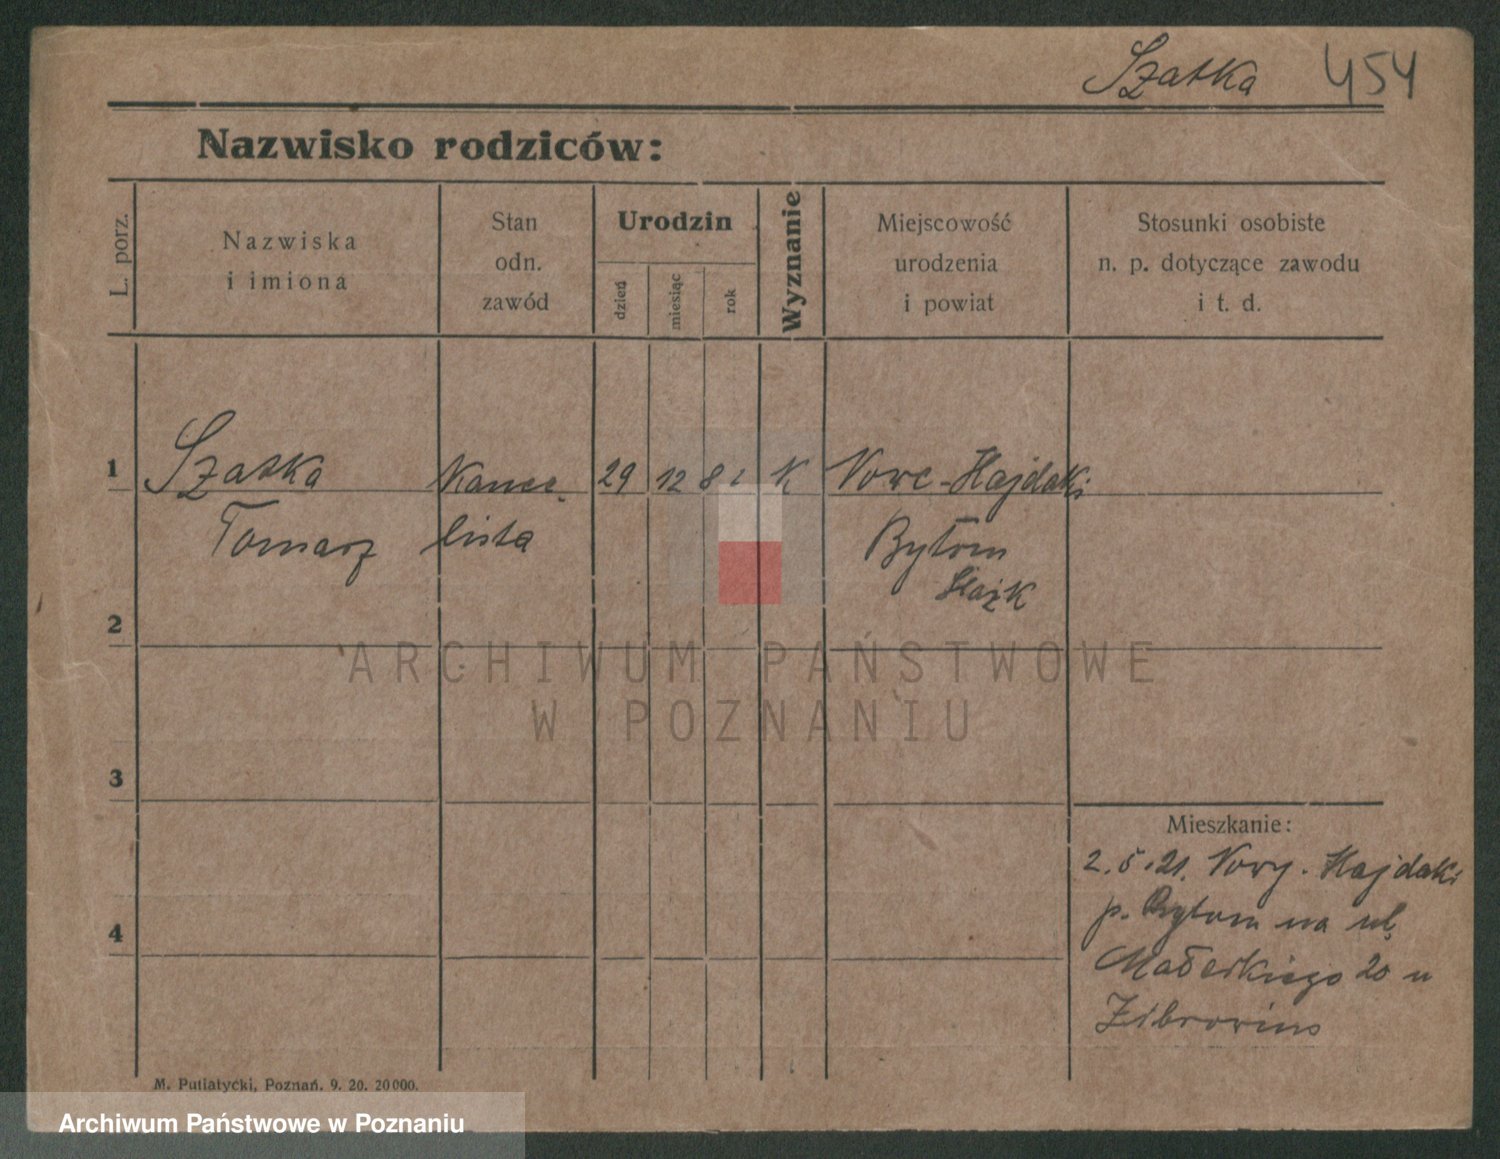 Szatka 454
Nazwisko rodziców:
L. porz.
Nazwiska
i imiona
Stan
odn.
zawód
Urodzin
dzień
miesiąc
rok
Wyznanie
Miejscowość
urodzenia
i powiat
Stosunki osobiste
n. p. dotyczące zawodu
i t. d.
1 Szatka Kance- 29 12 81 K Nowe-Hajdaki
Tomasz lista Bytom
Śląsk
2
ARCHIWUM PAŃSTWOWE
W POZNANIU
3
Mieszkanie:
2.5.21. Nowy. Hajdaki
p. Bytom na ul.
4
Małeckiego 20 u
M. Putiatycki, Poznań. 9. 20. 20000.
Archiwum Państwowe w Poznaniu